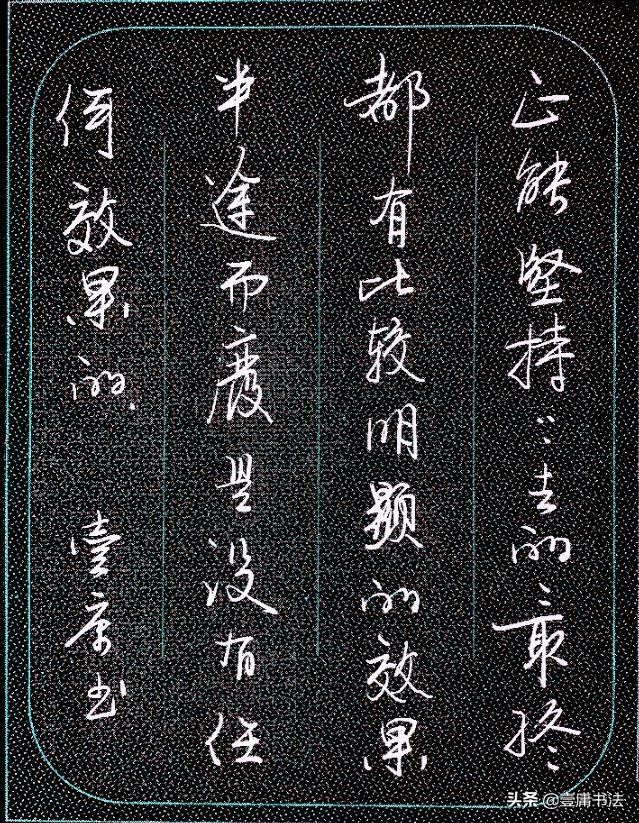 正能坚持下去的最终
都有比较明显的效果
半途而废是没有任
何效果的 壹庸书
头条 @壹庸书法